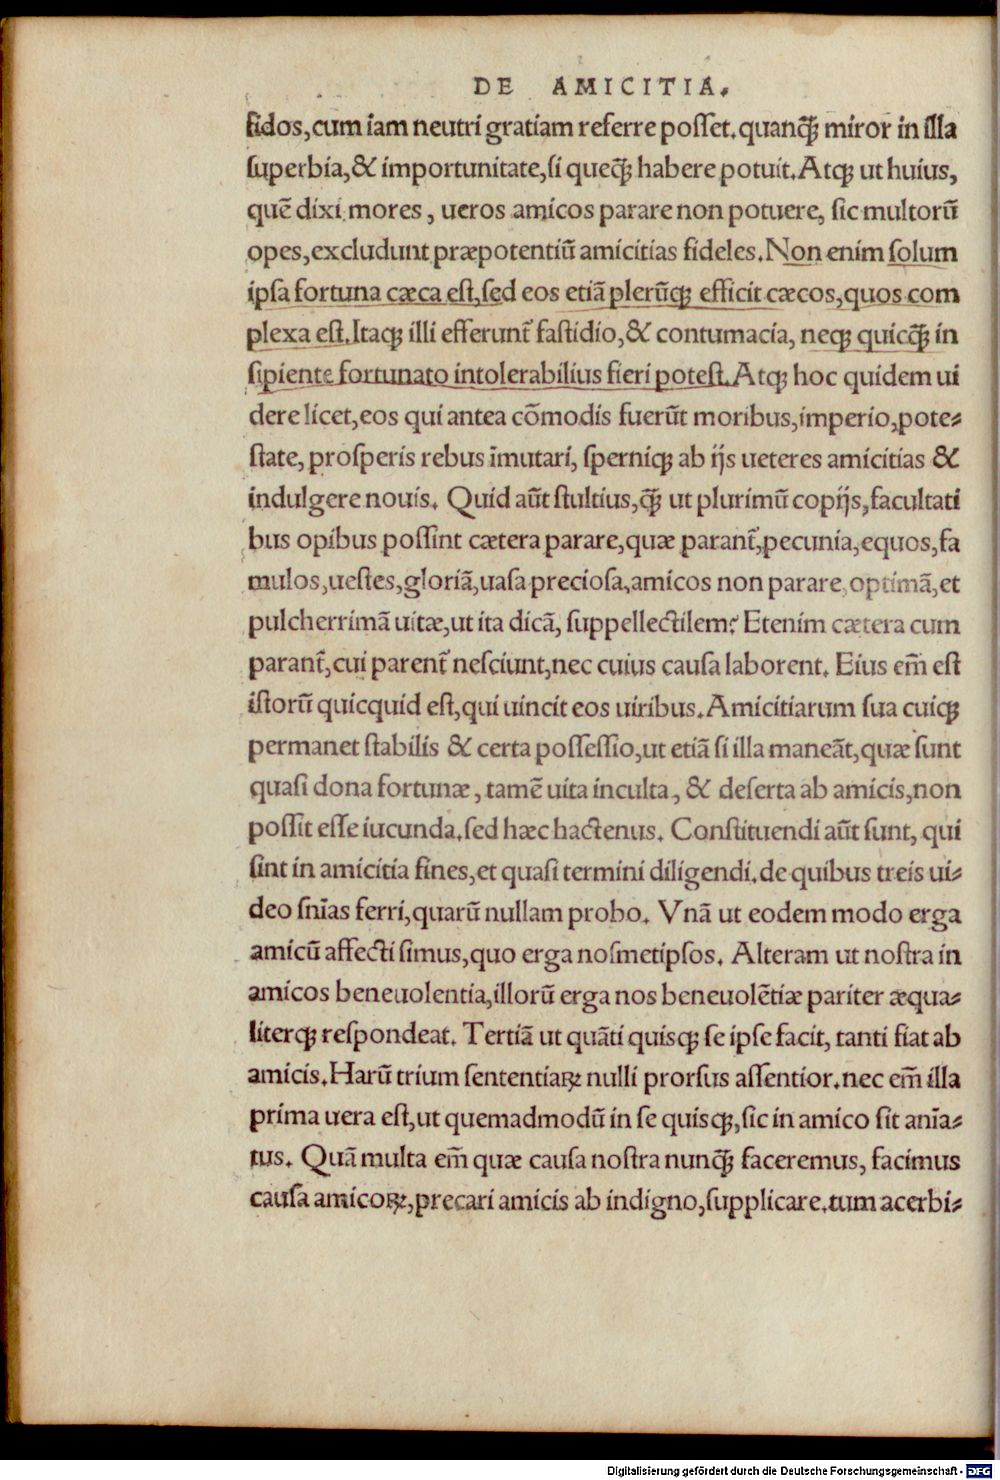 DE AMICITIA.
fidos,cum iam neutri gratiam referre poſſet.quanq̃ꝫ miror in illa
ſuperbia,& importunitate,ſi queq̃ꝫ habere potuit.Atqꝫ ut huius,
quẽ dixi mores, ueros amicos parare non potuere, ſic multorũ
opes,excludunt præpotentiũ amicitias fideles.Non enim ſolum
ipſa fortuna cæca eſt,ſed eos etiã plerũqꝫ efficit cæcos,quos com
plexa eſt.Itaqꝫ illi efferunt᷑ faſtidio,& contumacia, neqꝫ quicq̃ꝫ in
ſipiente fortunato intolerabilius fieri poteſt.Atqꝫ hoc quidem ui
dere licet,eos qui antea cõmodis fuerũt moribus,imperio,pote⸗
ſtate, proſperis rebus ĩmutari, ſperniqꝫ ab ijs ueteres amicitias &
indulgere nouis. Quid aũt ſtultius,q̃ꝫ ut plurimũ copijs,facultati
bus opibus poſſint cætera parare,quæ parant᷑,pecunia,equos,fa
mulos,ueſtes,gloriã,uaſa precioſa,amicos non parare,optimã,et
pulcherrimã uitæ,ut ita dicã, ſuppellectilem? Etenim cætera cum
parant᷑,cui parent᷑ neſciunt,nec cuius cauſa laborent. Eius em̃ eſt
iſtorũ quicquid eſt,qui uincit eos uiribus.Amicitiarum ſua cuiqꝫ
permanet ſtabilis & certa poſſeſſio,ut etiã ſi illa maneãt,quæ ſunt
quaſi dona fortunæ, tamẽ uita inculta, & deſerta ab amicis,non
poſſit eſſe iucunda.ſed hæc hactenus. Conſtituendi aũt ſunt, qui
ſint in amicitia fines,et quaſi termini diligendi.de quibus treis ui⸗
deo ſnĩas ferri,quarũ nullam probo. Vnã ut eodem modo erga
amicũ affecti ſimus,quo erga noſmetipſos. Alteram ut noſtra in
amicos beneuolentia,illorũ erga nos beneuolẽtiæ pariter æqua⸗
literqꝫ reſpondeat. Tertiã ut quãti quisqꝫ ſe ipſe facit, tanti fiat ab
amicis.Harũ trium ſententiaꝝ nulli prorſus aſſentior.nec em̃ illa
prima uera eſt,ut quemadmodũ in ſe quisqꝫ,ſic in amico ſit anĩa⸗
tus. Quã multa em̃ quæ cauſa noſtra nunq̃ꝫ faceremus, facimus
cauſa amicoꝝ,precari amicis ab indigno,ſupplicare.tum acerbi⸗
Digitalisierung gefördert durch die Deutsche Forschungsgemeinschaft - DFG